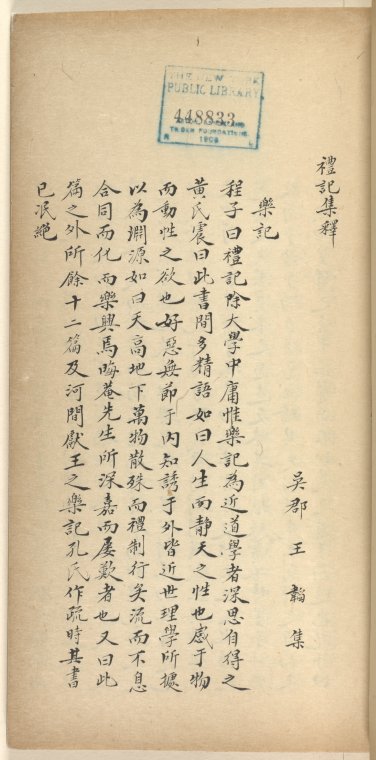 禮記集釋
吳郡 王韜 集
樂記
程子曰禮記除大學中庸惟樂記為近道學者深思自得之
黃氏震曰此書間多精語如曰人生而靜天之性也感于物
而動性之欲也好惡無節于內知誘于外皆近世理學所據
以為淵源如曰天高地下萬物散殊而禮制行矣流而不息
合同而化而樂興焉晦菴先生所深嘉而屢歎者也又曰此
篇之外所餘十二篇及河間獻王之樂記孔氏作疏時其書
已泯絕
THE NEW YORK
PUBLIC LIBRARY
448833
ASTOR, LENOX AND
TILDEN FOUNDATIONS.
1909